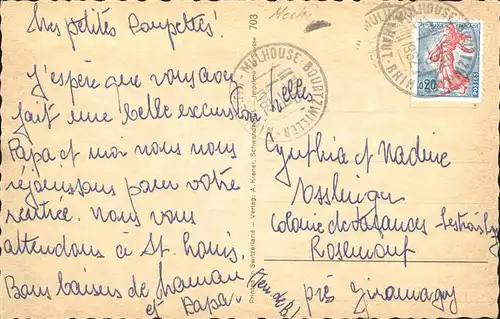 Mes petites Poupettes!
J'espère que vous avez
fait une belle excursion
Papa et moi nous nous
réjouissons pour votre
rentrée. Nous vous
attendons à St. Louis.
Bons baisers de Maman
et Papa.
703
Printed in Switzerland — Verlag: A. Kiener, Schwanden
MULHOUSE-BOURTZWILLER
HT-RHIN
MULHOUSE-BOURTZWILLER
HT-RHIN
0,20
POSTES
Melles
Cynthia et Nadine
Osslinger
Colonie de Vacances
Rosemont
près Giromagny
(Ter. de B.)